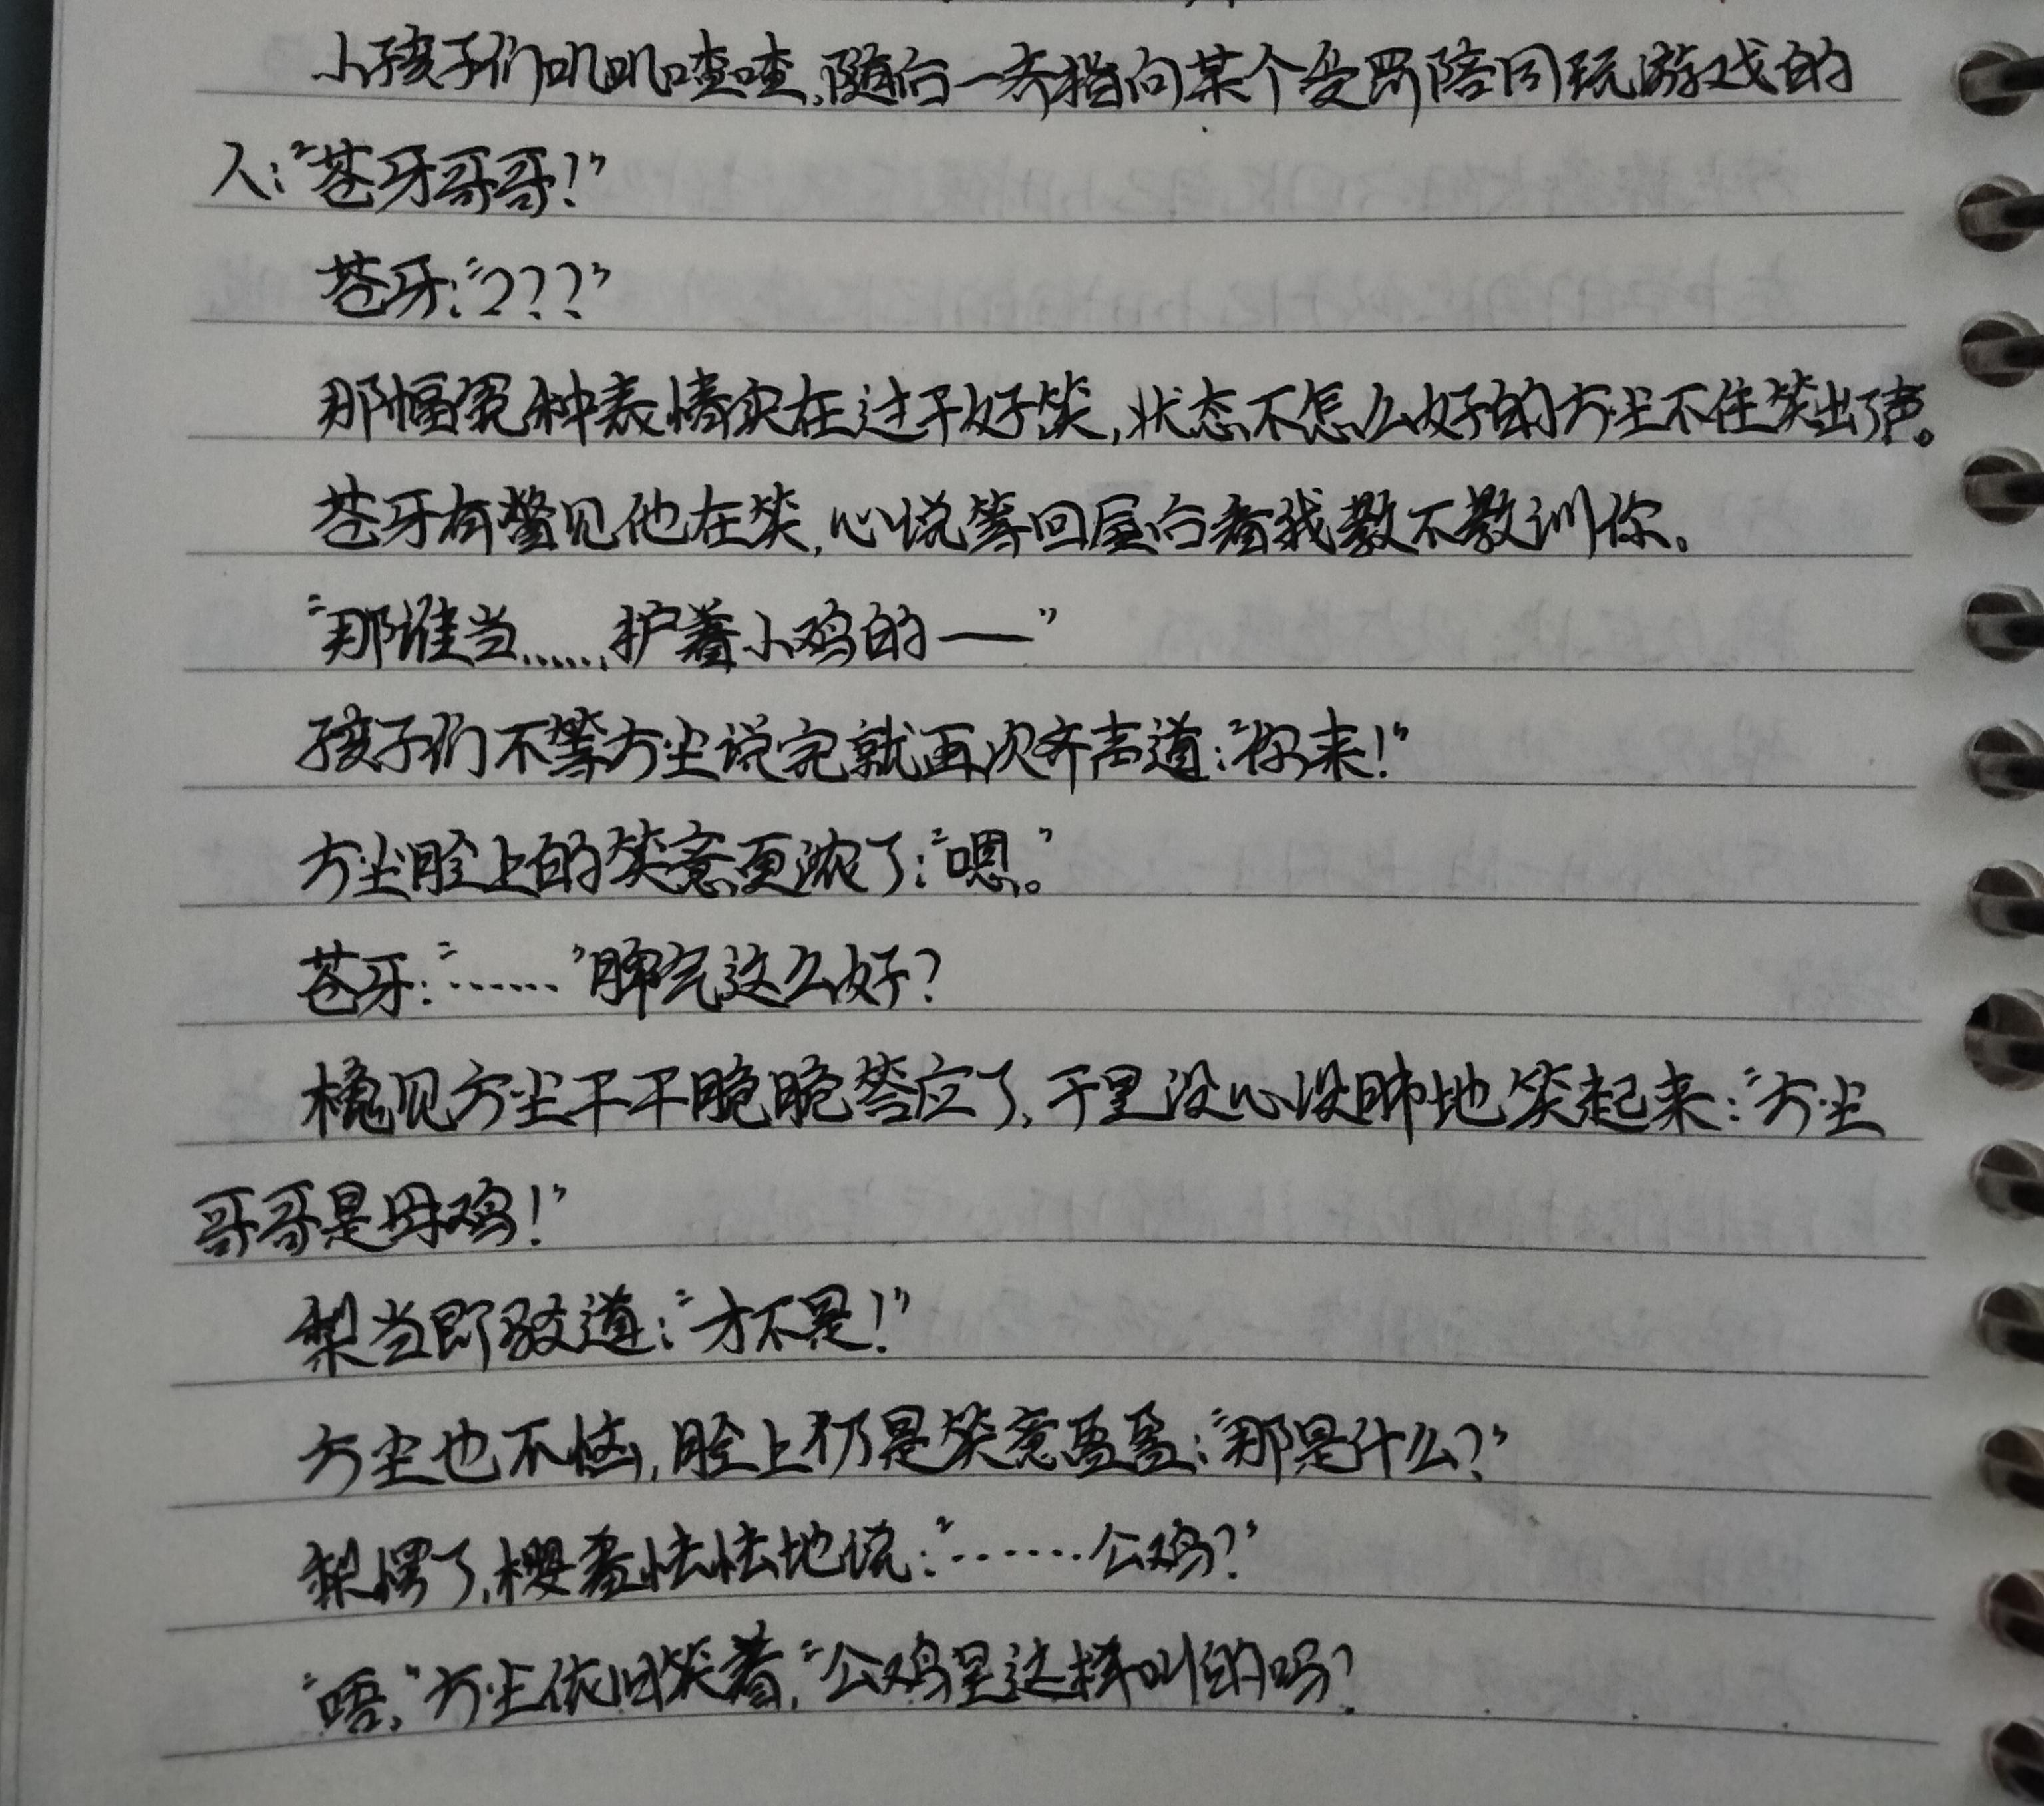 小孩子们叽叽喳喳,随后一齐指向某个受罚陪同玩游戏的
人:“苍牙哥哥!”
苍牙:“???”
那幅冤种表情实在过于好笑,状态不怎么好的方尘不住笑出了声。
苍牙有瞥见他在笑,心说等回屋后看我教不教训你。
“那谁当……护着小鸡的——”
孩子们不等方尘说完就再次齐声道:“你来!”
方尘脸上的笑意更浓了:“嗯。”
苍牙:“……”脾气这么好?
橘见方尘干干脆脆答应了,于是没心没肺地笑起来:“方尘
哥哥是母鸡!”
梨当即驳道:“才不是!”
方尘也不恼,脸上仍是笑意盈盈:“那是什么?”
梨愣了,樱看怯怯地说:“……公鸡?”
“唔,”方尘依旧笑着,“公鸡是这样叫的吗?